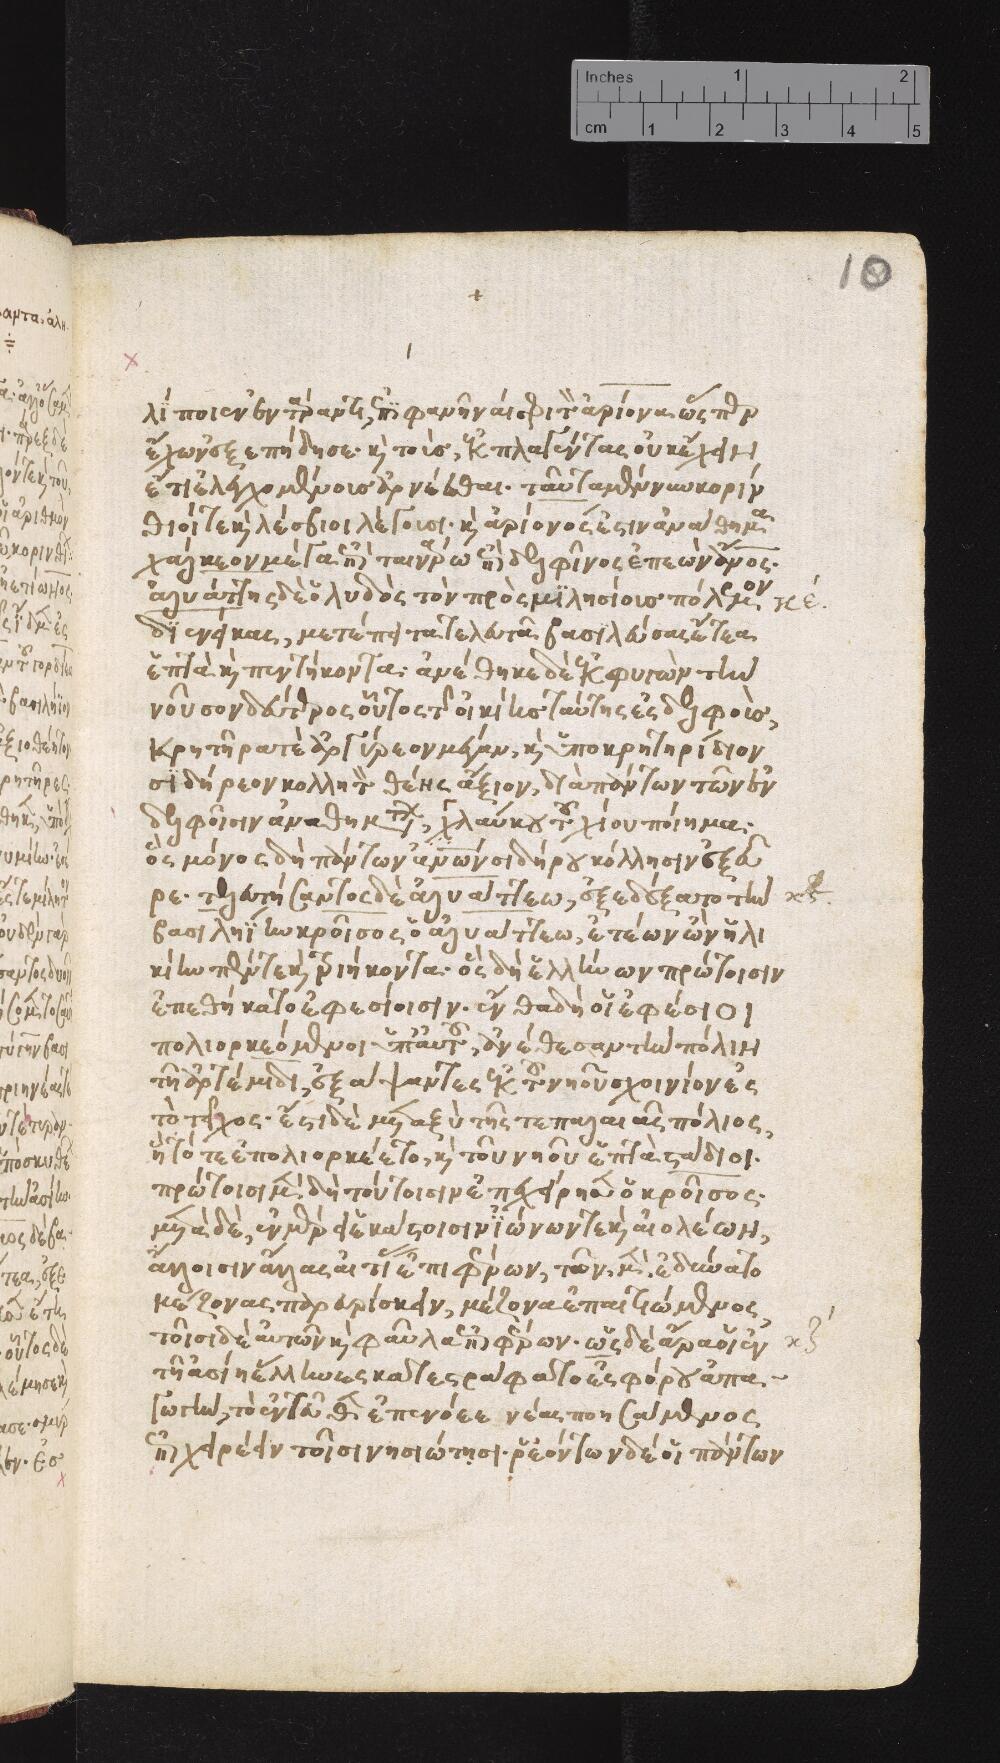 Inches 1 2
cm 1 2 3 4 5
10
λϊποιεν ἐν τάραντι, ἐπιφανῆναί σφι τὸν ἀρίονα, ὥσπερ
ἔχων ἐξεπήδησε· καὶ τοὺς, ἐκπλαγέντας οὐκ ἔχειν
ἔτι ἐλεγχομένοις ἀρνέεσθαι. ταῦτα μέν νυν κορίν
θιοί τε καὶ λέσβιοι λέγουσι· καὶ ἀρίονος ἐστὶν ἀνάθημα
χάλκεον μέγα ἐπὶ ταινάρω ἐπὶ δελφῖνος ἐπεὼν ἄνθρωπος.
ἀλυάττης δὲ ὁ λυδὸς τὸν πρὸς μϊλησίους πόλεμον κέ.
δϊενείκας, μετέπειτα τελευτᾶ βασιλεύσας ἔτεα
ἑπτὰ καὶ πεντήκοντα· ἀνέθηκε δὲ ἐκφυγὼν τὴν
νοῦσον δεύτερος οὗτος τῆς οἰκίης ταύτης ἐς δελφοὺς,
κρητῆρά τε ἀργύρεον μέγαν, καὶ ὑποκρητηρίδιον
σϊδήρεον κολλητὸν θέης ἄξιον, διὰ πάντων τῶν ἐν
δελφοῖσιν ἀναθημάτων, γλαύκου τοῦ χίου ποίημα·
ὃς μόνος δὴ πάντων ἀνθρώπων σιδήρου κόλλησιν ἐξεῦ
ρε. τελευτήσαντος δὲ ἀλυάττεω, ἐξεδέξατο τὴν κϛ.
βασιληΐην κροῖσος ὁ ἀλυάττεω, ἐτέων ἐὼν ἡλι
κίην πέντε καὶ τριήκοντα· ὃς δὴ ἑλλήνων πρώτοισιν
ἐπεθήκατο ἐφεσίοισιν. ἔνθα δὴ οἱ ἐφέσιοι
πολιορκεόμενοι ὑπ' αὐτοῦ, ἀνέθεσαν τὴν πόλιν
τῆ ἀρτέμιδι, ἐξάψαντες ἐκ τοῦ νηοῦ σχοινίον ἐς
τὸ τεῖχος. ἔστι δὲ μεταξὺ τῆς τε παλαιᾶς πόλιος,
ἣ τότε ἐπολιορκέετο, καὶ τοῦ νηοῦ ἑπτὰ στάδιοι.
πρώτοισι μὲν δὴ τούτοισιν ἐπεχείρησε ὁ κροῖσος.
μετὰ δὲ, ἐν μέρει ἑκάστοισιν ἰώνων τε καὶ αἰολέων,
ἄλλοισιν ἄλλας αἰτίας ἐπιφέρων, τῶν μὲν ἐδύνατο
μέζονας παρευρίσκειν, μέζονα ἐπαιτιώμενος,
τοῖσι δὲ αὐτῶν καὶ φαῦλα ἐπιφέρων. ὡς δὲ ἄρα οἱ ἐν κζ
τῆ ἀσίη ἕλληνες κατεστράφατο ἐς φόρου ἀπα-
γωγὴν, τὸ ἐνθεῦτεν ἐπενόεε νέας ποιησάμενος
ἐπιχειρέειν τοῖσι νησιώτησι. ἐόντων δέ οἱ πάντων